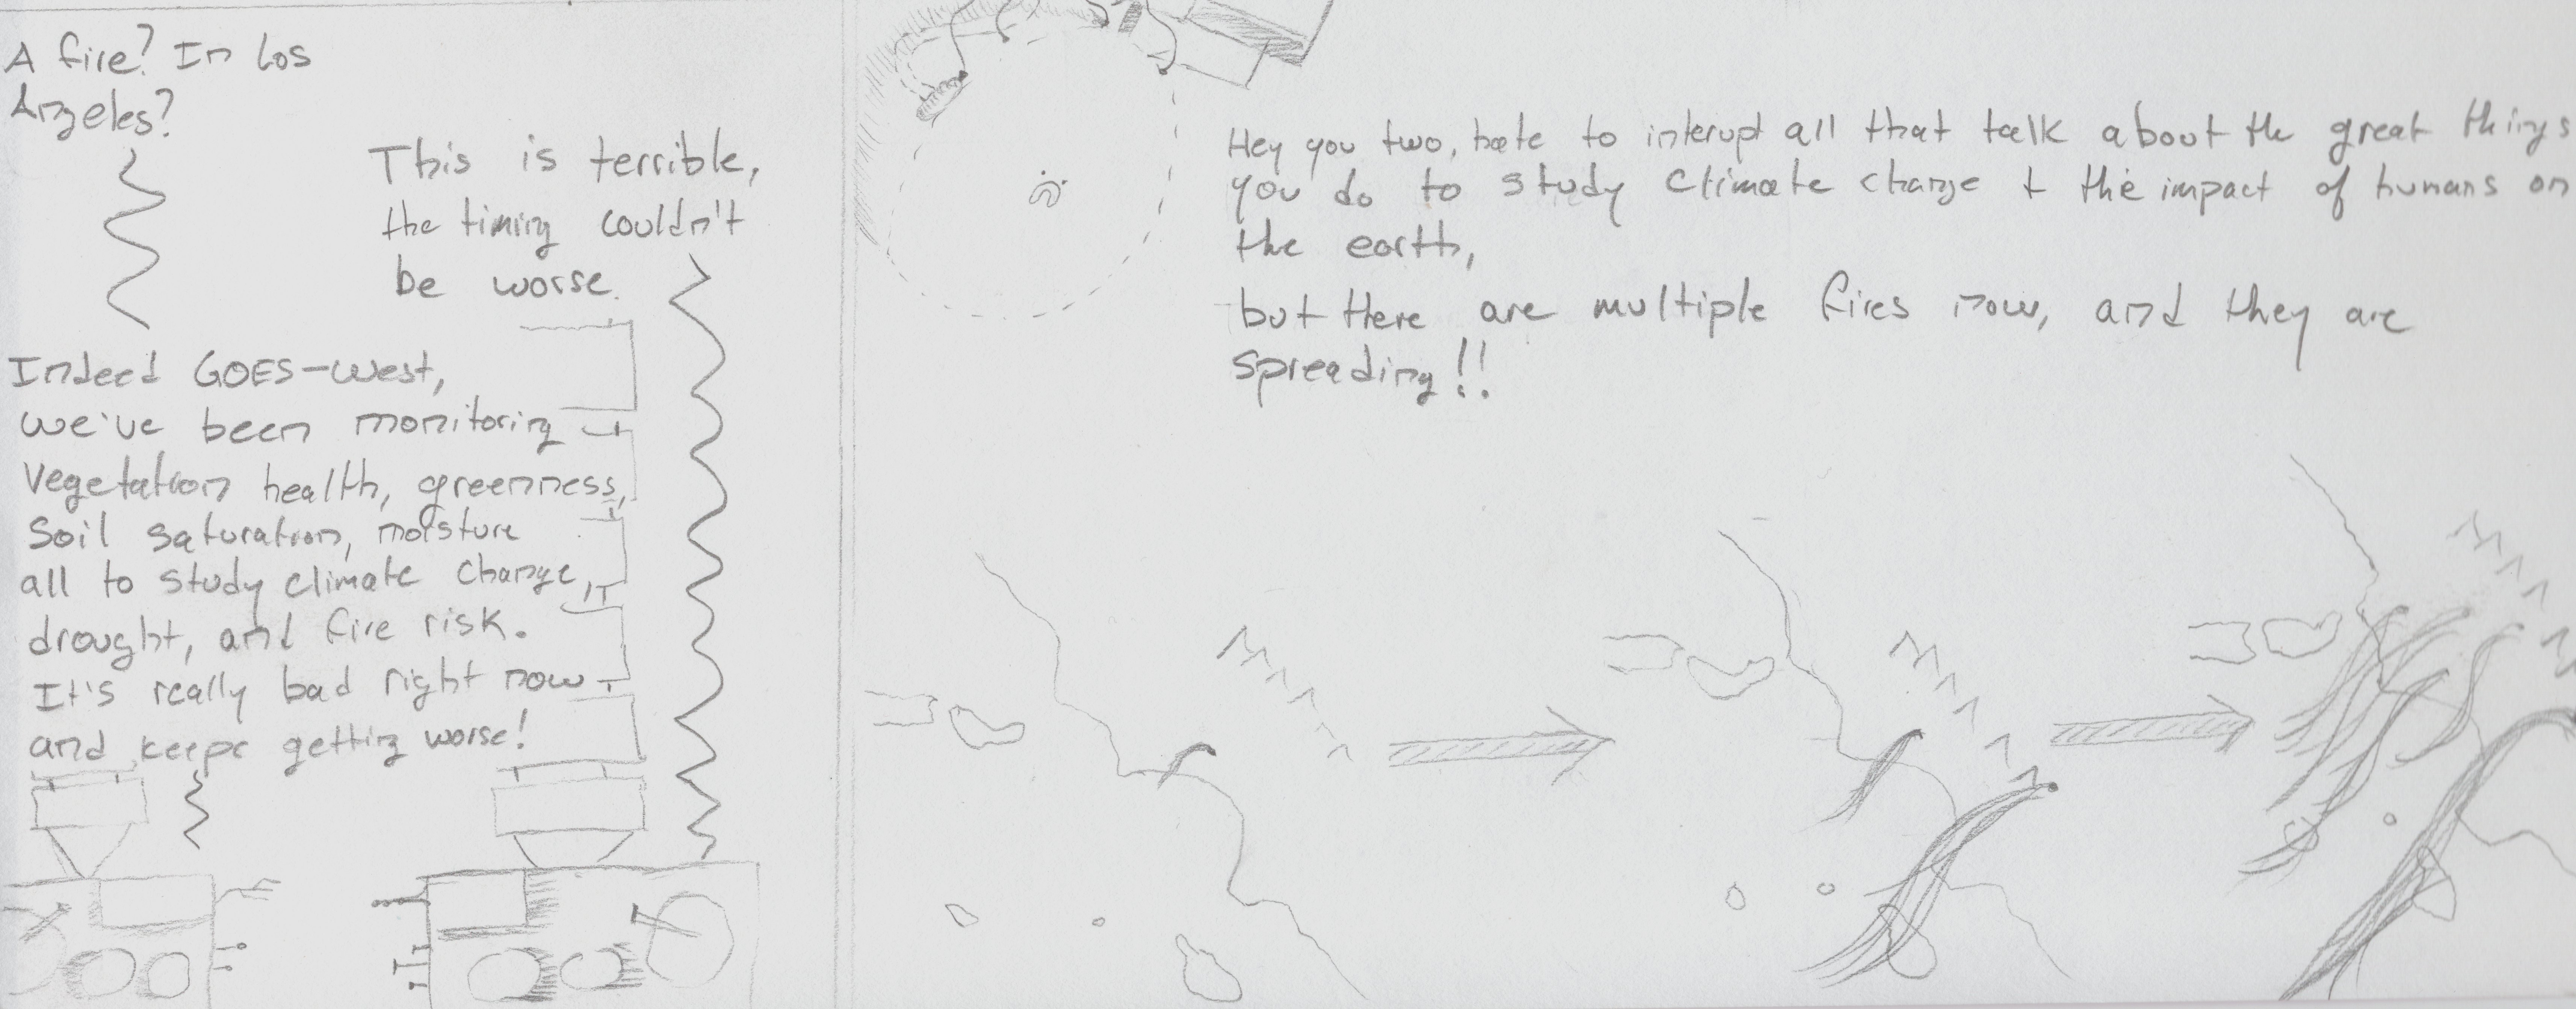 A fire? In Los
Angeles?
This is terrible,
the timing couldn't
be worse.
Indeed GOES-West,
we've been monitoring
vegetation health, greenness,
soil saturation, moisture
all to study climate change,
drought, and fire risk.
It's really bad right now
and keeps getting worse!
Hey you two, hate to interupt all that talk about the great things
you do to study climate change + the impact of humans on
the earth,
but there are multiple fires now, and they are
spreading!!